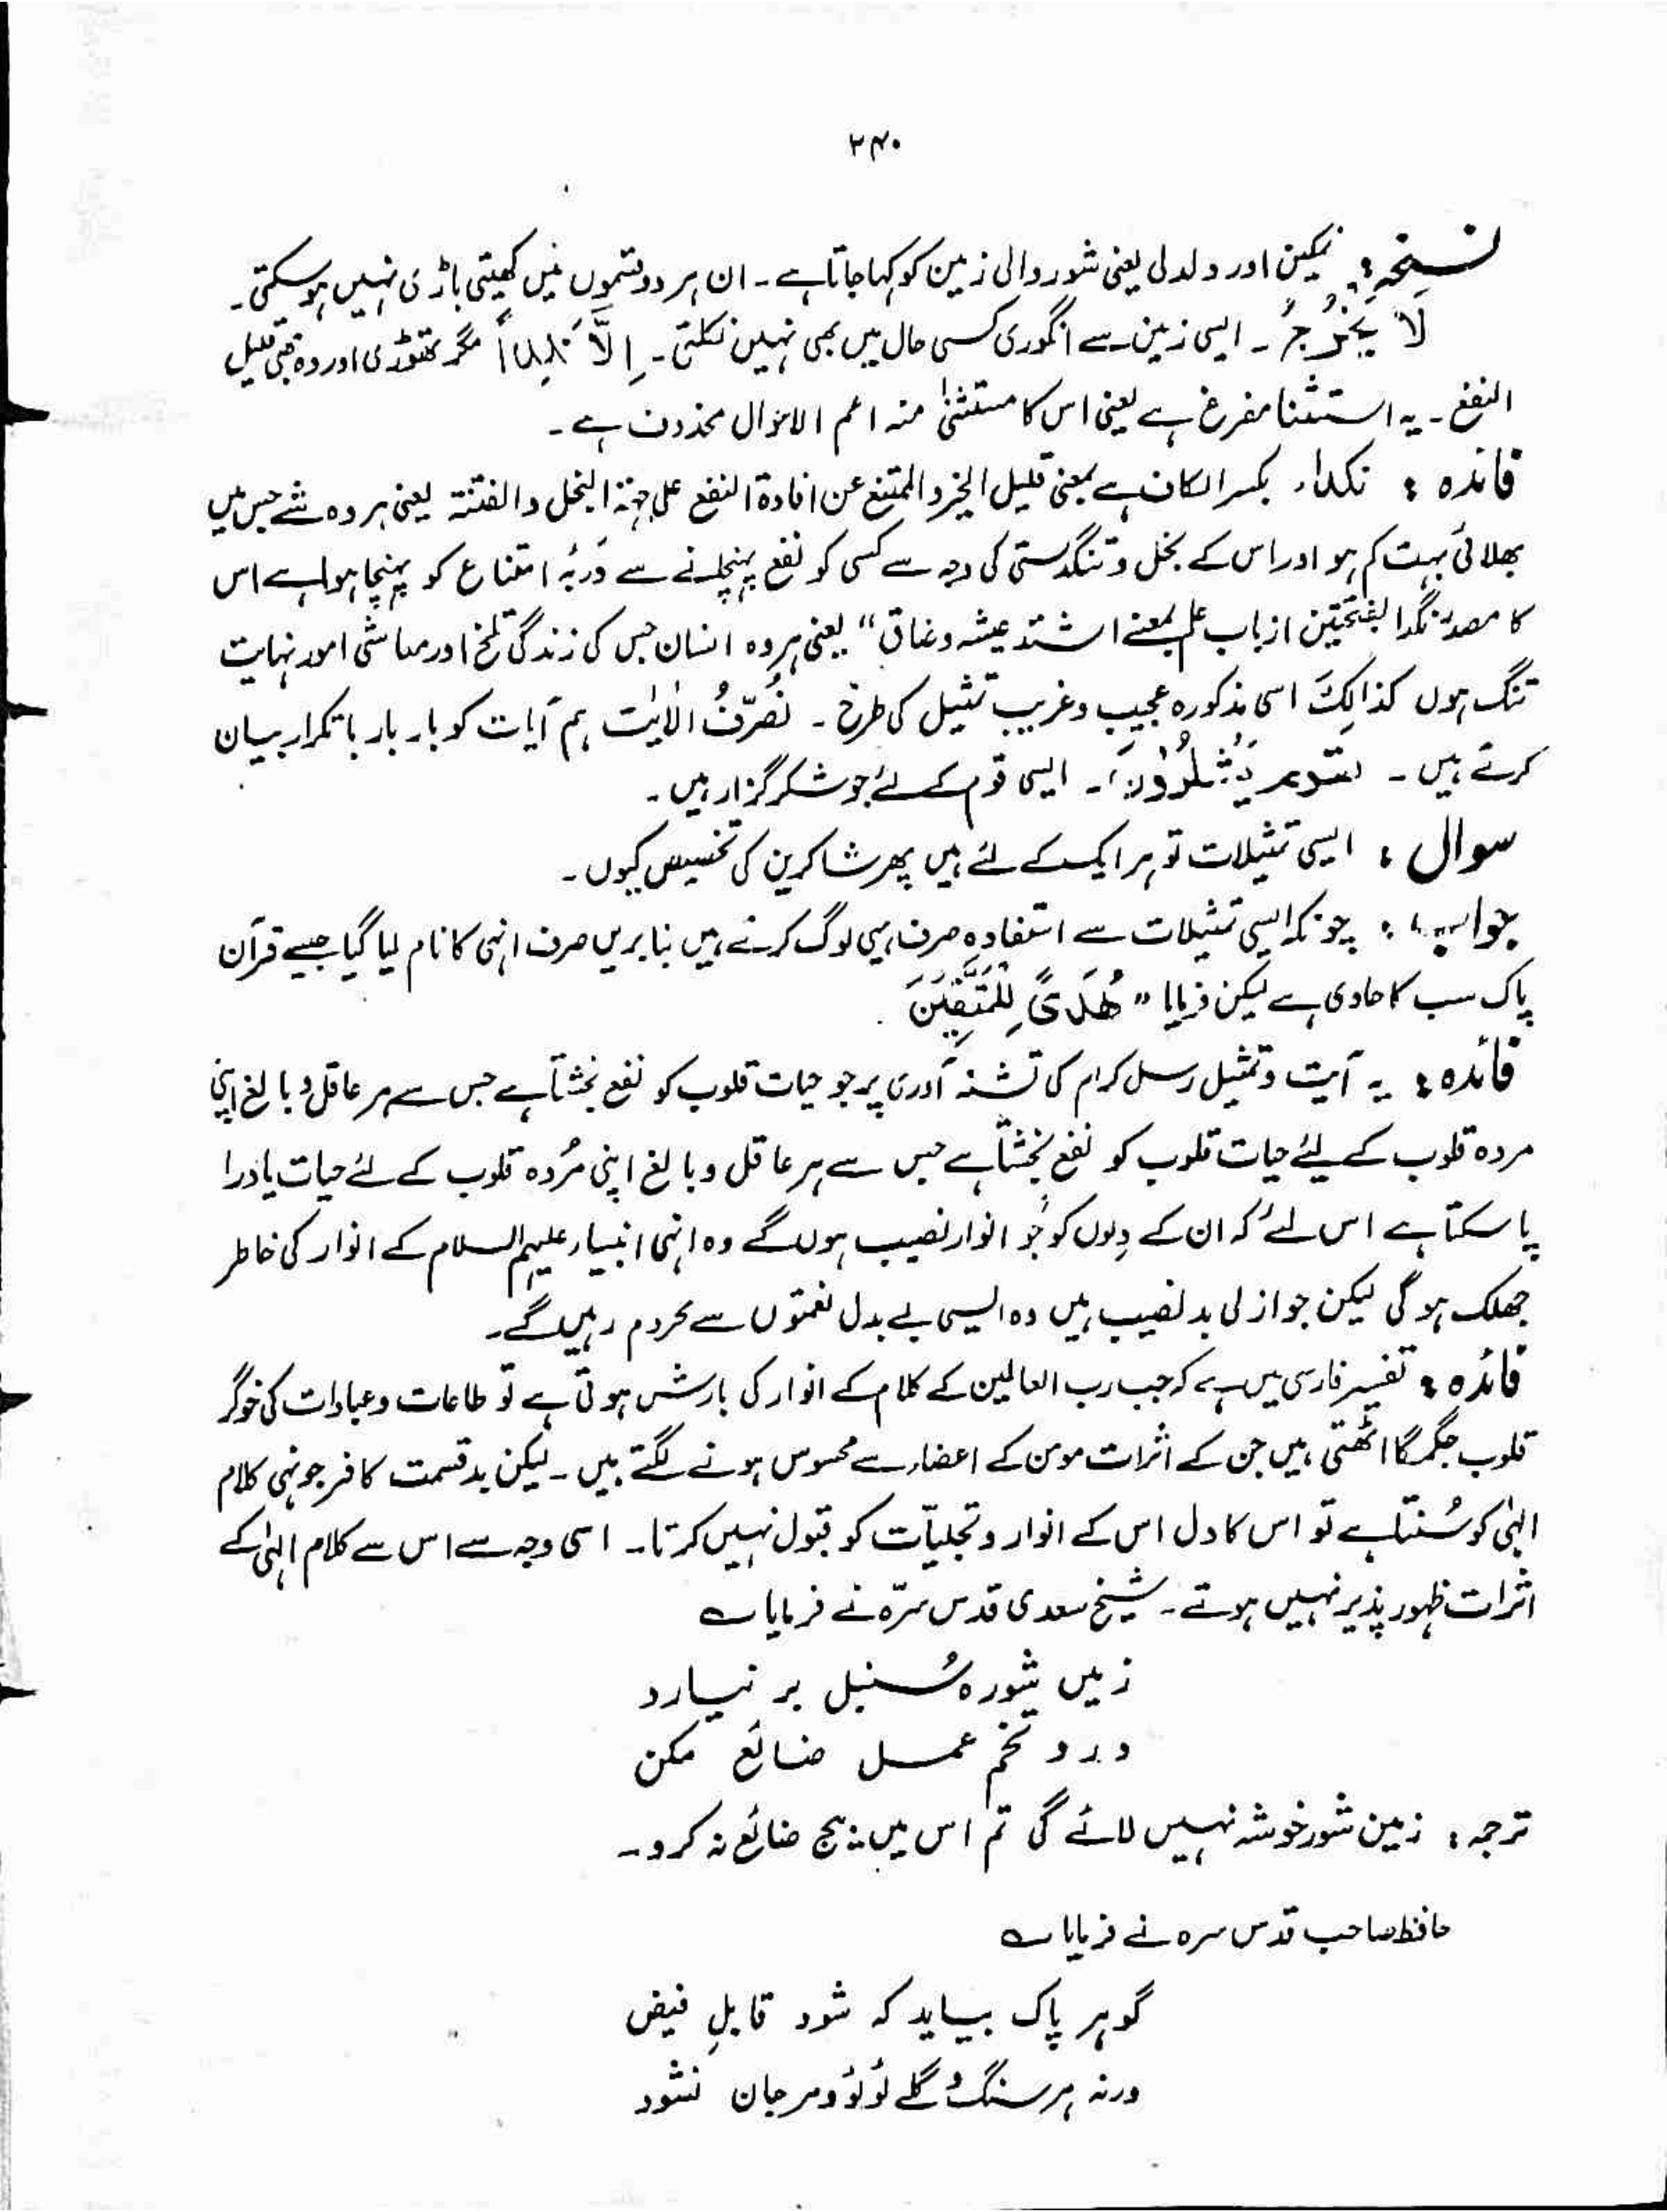 ۲۴۰
نسخہ: نمکین اور دلدلی یعنی شور والی زمین کو کہا جاتا ہے۔ ان ہر دو قسموں میں کھیتی باڑی نہیں ہو سکتی۔
لَا يَخْرُجُ ۔ ایسی زمین سے انگوری کسی حال میں بھی نہیں نکلتی۔ اِلَّا نَكِدًا مگر تھوڑی اور وہ بھی قلیل
النفع۔ یہ استثنا مفرغ ہے یعنی اس کا مستثنیٰ منہ اعم الاحوال محذوف ہے۔
فائدہ : نکدا، بکسر الکاف ہے بمعنی قلیل الخیر والممتنع عن افادۃ النفع علی جہۃ البخل والفتنۃ یعنی ہر وہ شے جس میں
بھلائی بہت کم ہو اور اس کے بخل و تنگدستی کی وجہ سے کسی کو نفع پہنچانے سے درجۂ امتناع کو پہنچا ہوا ہے اس
کا مصدر نکدا بفتحتین از باب علم بمعنے اشتد عیشہ وغاق“ یعنی ہر وہ انسان جس کی زندگی تلخ اور معاشی امور نہایت
تنگ ہوں کذالِکَ اسی مذکورہ عجیب و غریب تمثیل کی طرح ۔ نُصَرِّفُ الْاٰیٰت ہم آیات کو بار بار باتکرار بیان
کرتے ہیں ۔ لقوم یَّشْکُرُوْنَ ۔ ایسی قوم کے لئے جو شکر گزار ہیں۔
سوال : ایسی تمثیلات تو ہر ایک کے لئے ہیں پھر شاکرین کی تخصیص کیوں۔
جواب : چونکہ ایسی تمثیلات سے استفادہ صرف یہی لوگ کرتے ہیں بنا بریں صرف انہی کا نام لیا گیا جیسے قرآن
پاک سب کا ھادی ہے لیکن فرمایا ” ھُدًی لِّلْمُتَّقِیْنَ
فائدہ : یہ آیت و تمثیل رسل کرام کی تشنہ آوری پر جو حیات قلوب کو نفع بخشتا ہے جس سے ہر عاقل و بالغ اپنی
مردہ قلوب کے لیئے حیات قلوب کو نفع بخشتا ہے جس سے ہر عاقل و بالغ اپنی مُردہ قلوب کے لئے حیات یا درا
پا سکتا ہے اس لئے کہ ان کے دِلوں کو جُو انوار نصیب ہوں گے وہ انہی انبیاء علیہم السلام کے انوار کی خاطر
جھلک ہو گی لیکن جو ازلی بد نصیب ہیں وہ ایسی بے بدل نعمتوں سے محروم رہیں گے۔
فائدہ : تفسیر فارسی میں ہے کہ جب رب العالمین کے کلام کے انوار کی بارش ہوتی ہے تو طاعات و عبادات کی خوگر
قلوب جگمگا اٹھتی ہیں جن کے اثرات مومن کے اعضاء سے محسوس ہونے لگتے ہیں ۔ لیکن بد قسمت کافر جونہی کلام
الہٰی کو سُنتا ہے تو اس کا دل اس کے انوار و تجلیّات کو قبول نہیں کرتا۔ اسی وجہ سے اس سے کلام الہٰی کے
اثرات ظہور پذیر نہیں ہوتے ۔ شیخ سعدی قدس سرّہ نے فرمایا ؎
زمیں شورہ سُنبل بر نیارد
درو تخم عمل ضائع مکن
ترجمہ : زمین شور خوشہ نہیں لائے گی تم اس میں بیج ضائع نہ کرو۔
حافظ صاحب قدس سرہ نے فرمایا ؎
گوہر پاک بیاید کہ شود قابلِ فیض
ورنہ ہر سنگ و گلے لُؤلُؤ و مرجان نشود